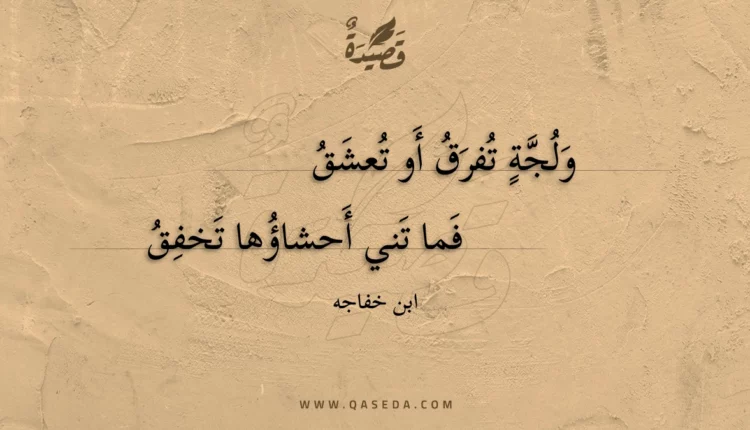 قَصِيدَةٌ
وَلُجَّةٍ تُفرَقُ أَو تُعشَقُ
فَما تَني أَحشاؤُها تَخفِقُ
ابن خفاجه
WWW.QASEDA.COM